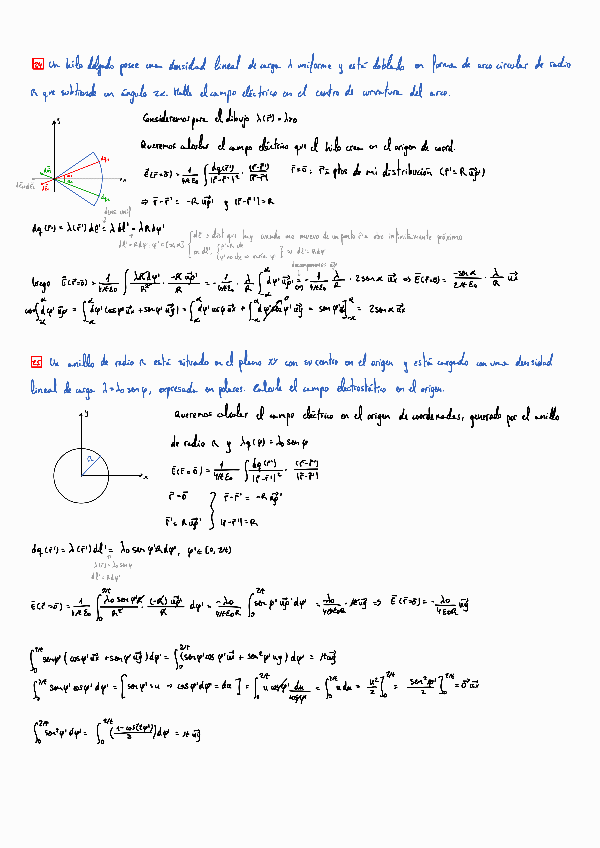 24 Un hilo delgado posee una densidad lineal de carga λ uniforme y está doblado en forma de arco circular de radio
R que subtiende un ángulo 2α. Halle el campo eléctrico en el centro de curvatura del arco.
Consideremos para el dibujo λ(r⃗') = λ>0
Queremos calcular el campo eléctrico que el hilo crea en el origen de coord.
E⃗(r⃗=0⃗) = 1/4πε₀ ∫ dq(r⃗')/|r⃗-r⃗'|² · (r⃗-r⃗')/|r⃗-r⃗'|   r⃗=0⃗; r⃗'= ptos de mi distribución (r⃗'= R u⃗ρ')
⇒ r⃗-r⃗' = -R u⃗ρ' y |r⃗-r⃗'| = R
dq(r⃗') = λ(r⃗') dl' = λ dl' = λR dφ'
dl' = Rdφ', φ'∈[-α,α]
luego E⃗(r⃗=0⃗) = 1/4πε₀ ∫ λRdφ'/R² · -R u⃗ρ'/R = -1/4πε₀ · λ/R ∫ dφ' u⃗ρ' = -1/4πε₀ λ/R · 2senα u⃗x ⇒ E⃗(r⃗=0⃗) = -senα/2πε₀ · λ/R u⃗x
con ∫ dφ' u⃗ρ' = ∫ (dφ' cosφ' u⃗x + senφ' u⃗y) = ∫ dφ' cosφ' u⃗x + ∫ dφ' senφ' u⃗y = senφ']  = 2senα u⃗x
25 Un anillo de radio R está situado en el plano XY con su centro en el origen y está cargado con una densidad
lineal de carga λ=λ₀ sen φ, expresada en polares. Calcule el campo electrostático en el origen.
y
R
x
Queremos calcular el campo eléctrico en el origen de coordenadas, generado por el anillo
de radio R y λq(φ) = λ₀ sen φ
E⃗(r⃗=0⃗) = 1/4πε₀ ∫ dq(r⃗')/|r⃗-r⃗'|² · (r⃗-r⃗')/|r⃗-r⃗'|
r⃗=0⃗   r⃗-r⃗' = -R u⃗ρ'
r⃗'= R u⃗ρ'   |r⃗-r⃗'| = R
dq(r⃗') = λ(r⃗') dl' = λ₀ sen φ' R dφ', φ'∈[0, 2π)
λ(r⃗') = λ₀ sen φ
dl' = R dφ'
E⃗(r⃗=0⃗) = 1/4πε₀ ∫₀^2π λ₀ sen φ' R/R² · (-R) u⃗ρ'/R dφ' = -λ₀/4πε₀R ∫₀^2π sen φ' u⃗ρ' dφ' = -λ₀/4πε₀R · π u⃗y ⇒ E⃗(r⃗=0⃗) = -λ₀/4ε₀R u⃗y
∫₀^2π senφ' (cosφ' u⃗x + senφ' u⃗y) dφ' = ∫₀^2π (senφ' cosφ' u⃗x + sen²φ' u⃗y) dφ' = π u⃗y
∫₀^2π senφ' cosφ' dφ' = [senφ' = u → cosφ' dφ' = du] = ∫₀^2π u cosφ' du/cosφ' = ∫₀^2π u du = u²/2]₀^2π = sen²φ'/2]₀^2π = 0 u⃗x
∫₀^2π sen²φ' dφ' = ∫₀^2π (1-cos(2φ')/2) dφ' = π u⃗y